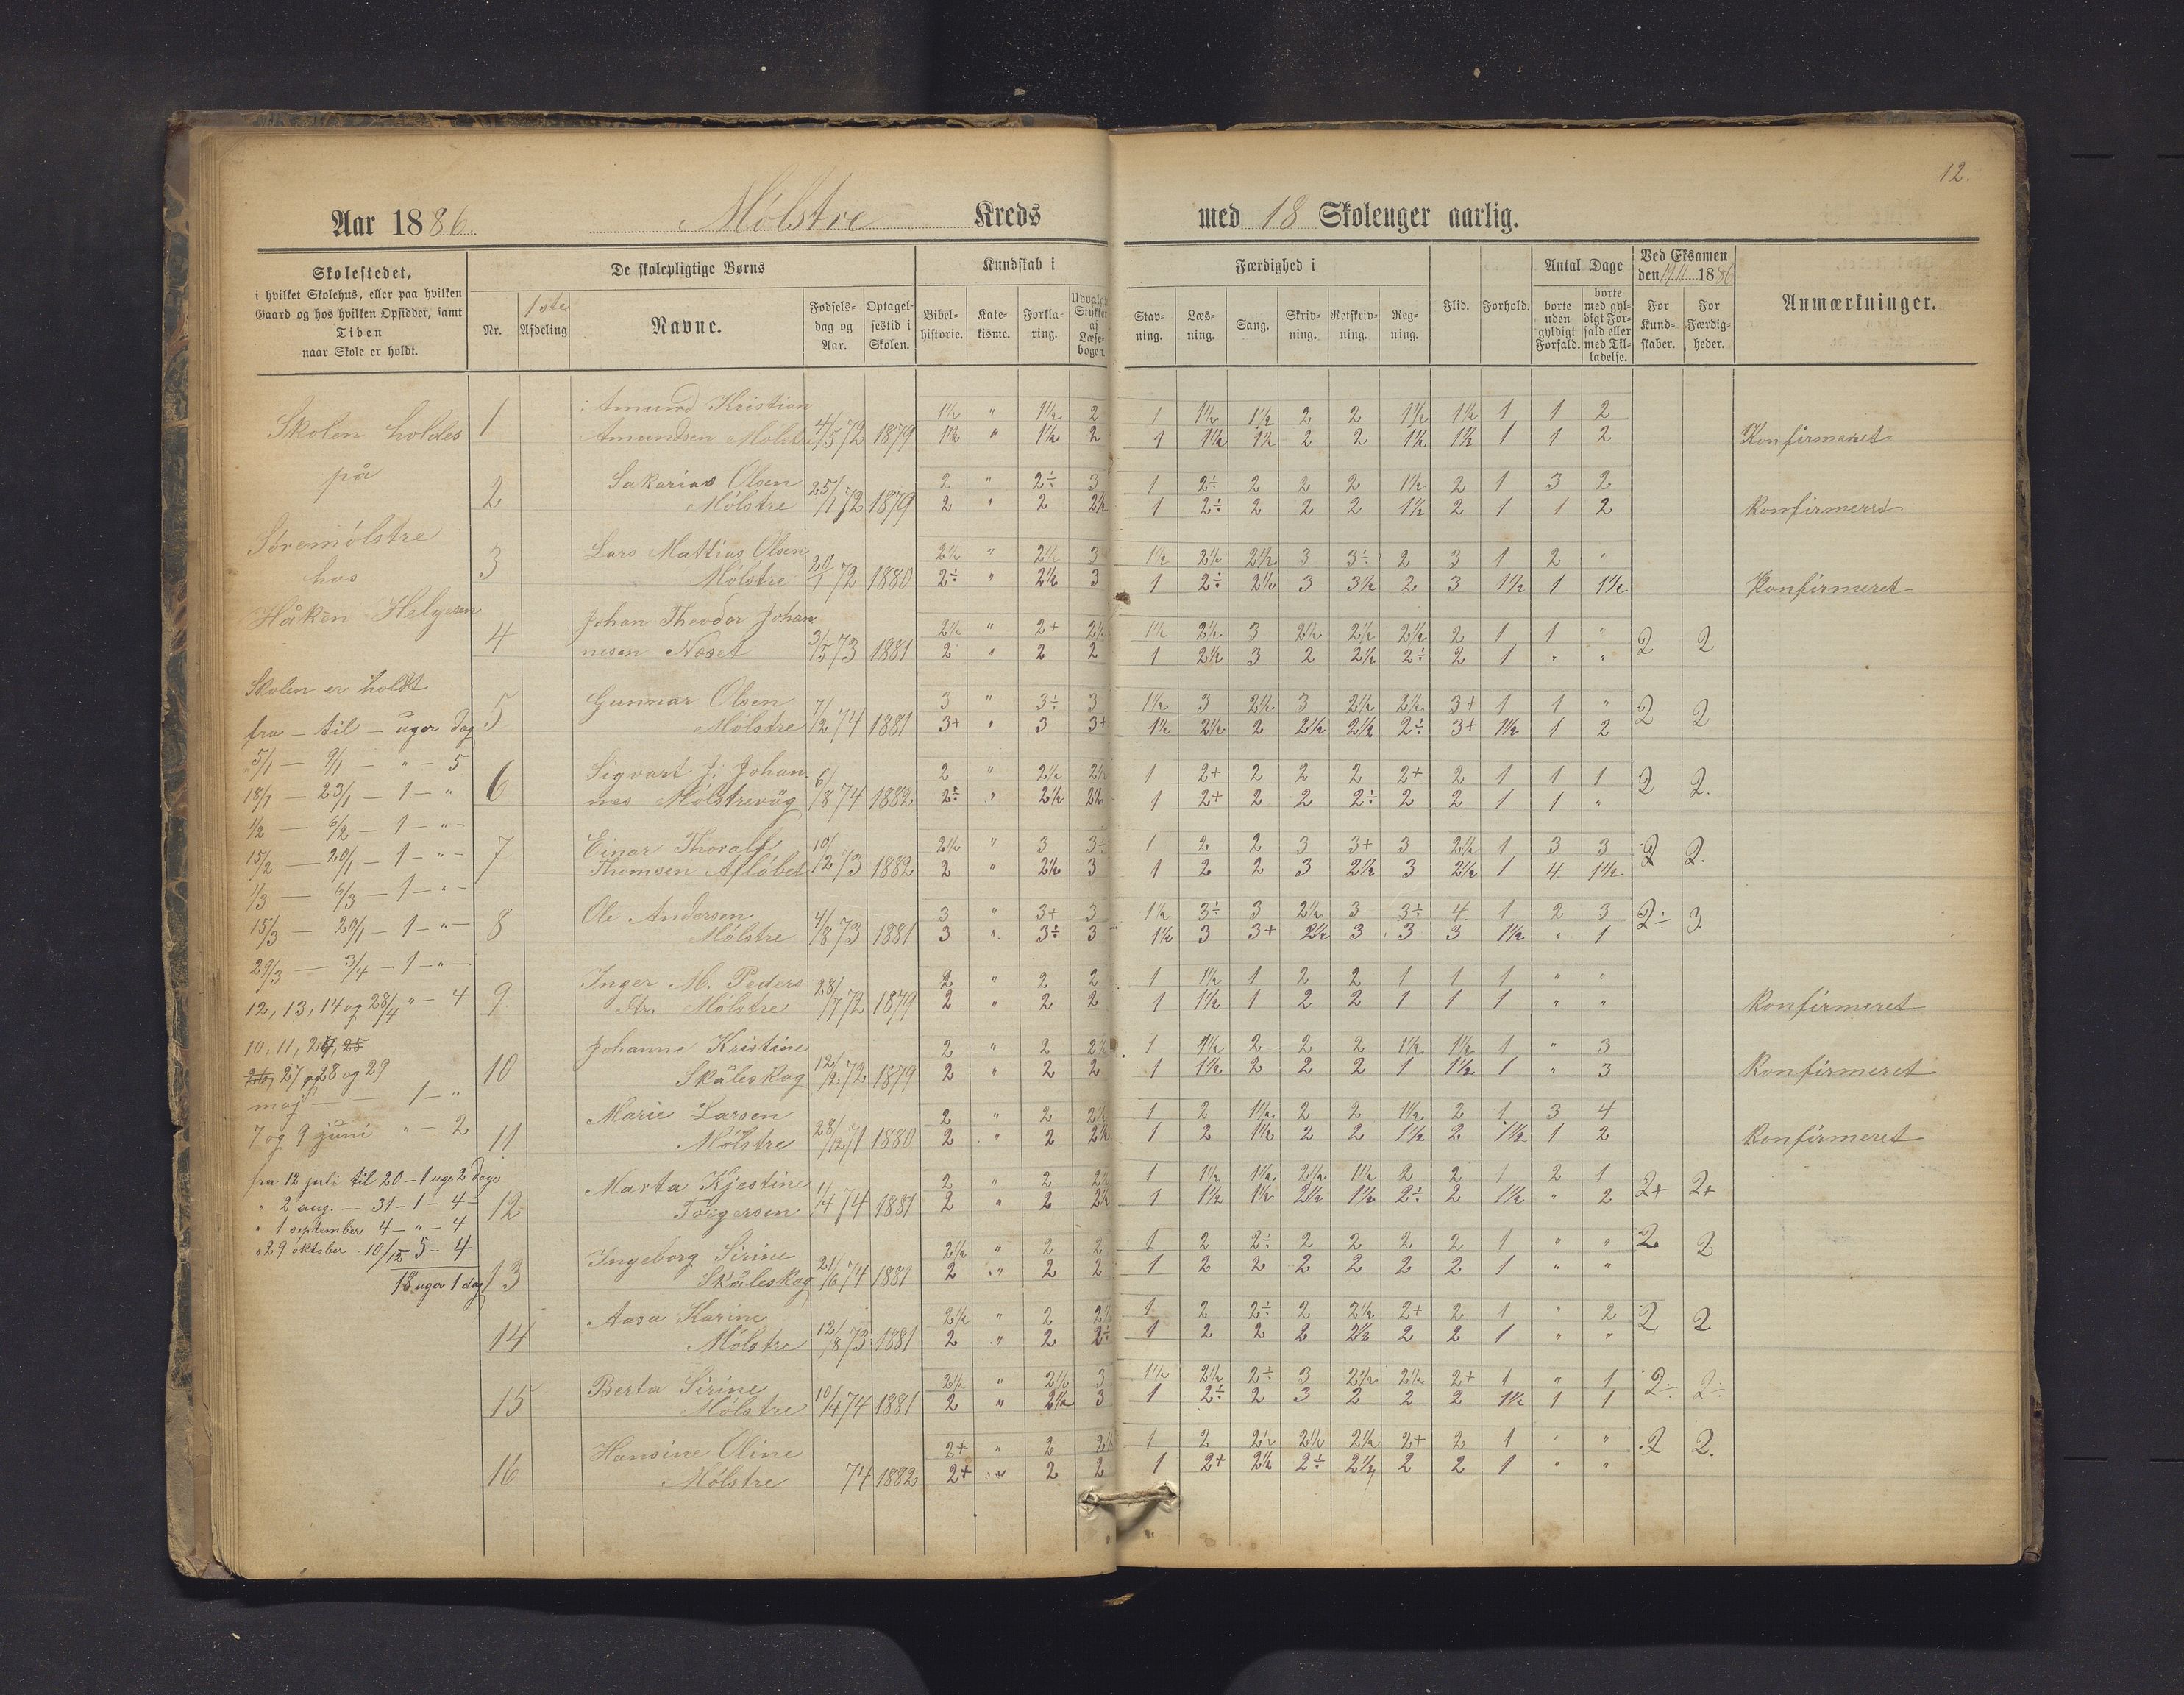 12.
Aar 1886. Mölstre Kreds med 18 Skoleuger aarlig.
Skolestedet,
i hvilket Skolehus, eller paa hvilken
Gaard og hos hvilken Opsidder, samt
Tiden
naar Skole er holdt.
De skolepligtige Børns
Nr.
1ste
Afdeling
Navne.
Fødsels-
dag og
Aar.
Optagel-
sestid i
Skolen.
Kundskab i
Bibel-
historie.
Kate-
kisme.
Forkla-
ring.
Udvalgte
Stykker
af
Læse-
bogen.
Færdighed i
Stav-
ning.
Læs-
ning.
Sang.
Skriv-
ning.
Retskriv-
ning.
Reg-
ning.
Flid.
Forhold.
Antal Dage
borte
uden
gyldigt
Forfald.
borte
med gyl-
digt For-
fald eller
med Til-
ladelse.
Ved Eksamen
den 1886
For
Kund-
skaber.
For
Færdig-
heder.
Anmærkninger.
Skolen holdes
på
Söremölstre
hos
Håken Helgesen
Skolen er holdt
fra - til - uger dag
5/1 - 9/1 - " - 5
18/1 - 23/1 - 1 - "
1/2 - 6/2 - 1 - " -
15/2 - 20/1 - 1 - " -
1/3 - 6/3 - 1 - " -
15/3 - 20/1 - 1 - " -
29/3 - 3/4 - 1 - " -
12, 13, 14 og 28/4 " - 4
10, 11, 24, 25
26, 27 og 28 og 29
maj - 1 - "
7 og 9 juni " - 2
fra 12 juli til 20 - 1 uge 2 dage
" 2 aug. - 31 - 1 - 4 -
" 1 september 4 - " - 4
" 29 oktober - 10/12 - 5 - 4
18 uger 1 dag
1 Amund Kristian 1½ " 1½ 2 1 1½ 1½ 2 2 1½ 1½ 1 1 2
Amundsen Mölstre 4/5 72 1879 1½ " 1½ 2 1 1½ 1½ 2 2 1½ 1½ 1 1 2 Konfirmeret
2 Sakarias Olsen 2 " 2÷ 3 1 2÷ 2 2 2 1½ 2 1 3 2
Mölstre 25/1 72 1879 2 " 2 2½ 1 2÷ 2 2 2 1½ 2 1 1 2 Konfirmeret
3 Lars Mattias Olsen 2½ " 2½ 3 1½ 2½ 2½ 3 3÷ 2 3 1 2 "
Mölstre 20/1 72 1880 2÷ " 2½ 3 1 2÷ 2½ 3 3½ 2 3 1½ 1 1½ Konfirmeret
4 Johan Theodor Johan 2½ " 2+ 2½ 1½ 2½ 3 2½ 2½ 2½ 2 1 1 " 2 2
nesen Noset 3/5 73 1881 2 " 2 2 1 2½ 3 2 2½ 2÷ 2 1 " "
5 Gunnar Olsen 3 " 3÷ 3 1½ 3 2½ 3 2½ 2½ 3+ 1 1 " 2 2
Mölstre 7/12 74 1881 3+ " 3 3+ 1½ 2½ 2 2½ 2½ 2÷ 3+ 1½ 1 2
6 Sigvart J. Johan. 2 " 2½ 2½ 1 2+ 2 2 2 2+ 2 1 1 1 2 2.
nes Mölstrevåg 6/8 74 1882 2÷ " 2½ 2½ 1 2+ 2 2 2÷ 2 2 1 1 "
7 Einar Thoralf 2½ " 3 3÷ 1 2 2 3 3+ 3 2½ 1 3 3 2 2.
Thomsen Aflöbet 10/12 73 1882 2 " 2½ 3 1 2 2 3 2½ 3 2½ 1 4 1½
8 Ole Andersen 3 " 3+ 3 1½ 3÷ 3 2½ 3 3÷ 4 1 2 3 2÷ 3
Mölstre 4/8 73 1881 3 " 3÷ 3 1½ 3 3+ 2½ 3 3 3 1½ " 1
9 Inger M. Peders 2 " 2 2 1 1½ 1 2 2 1 1 1 " "
dtr. Mölstre 28/7 72 1879 2 " 2 2 1 1½ 1 2 2 1 1 1 " " Konfirmeret
10 Johanne Kristine 2 " 2 2½ 1 1½ 2 2 2 1½ 1½ 1 " 3
Skåleskog 12/2 72 1879 2 " 2 2 1 1½ 2 2 2 1 1½ 1 " 3 Konfirmeret
11 Marie Larsen 2 " 2 2½ 1 2 1½ 2 2 1½ 2 1 3 4
Mölstre 28/12 71 1880 2 " 2 2½ 1 2 1½ 2 2 1½ 2 1½ 1 2 Konfirmeret
12 Marta Kjestine 2 " 2 2½ 1 1½ 1½ 2½ 1½ 2 2 1 2 1 2+ 2+
Torgersen 1/4 74 1881 2 " 2 2½ 1 1½ 1½ 2½ 1½ 2÷ 2 1½ " 2
13 Ingeborg Sirine 2½ " 2 2 1 2 2÷ 2 2 2 2 1 " " 2 2
Skåleskog 21/6 74 1881 2 " 2 2 1 2 2 2 2 2 2 1 " "
14 Aasa Karine 2½ " 2 2½ 1 2 2÷ 2 2½ 2+ 2 1 " 2 2 2
Mölstre 12/8 73 1881 2 " 2 2÷ 1 2 2 2 2½ 2 2 1 " "
15 Berta Sirine 2½ " 2½ 3 1½ 2½ 2÷ 3 2½ 2½ 2+ 1 " 1 2÷ 2÷
Mölstre 10/4 74 1881 2 " 2½ 3 1 2÷ 2 3 2 2 2 1½ 1 1
16 Hansine Oline 2+ " 2 2½ 1 2 2½ 2½ 2½ 2+ 2 1 " " 2 2.
Mölstre 74 1882 2+ " 2 2 1 2+ 2½ 2÷ 2½ 2 2 1 " "